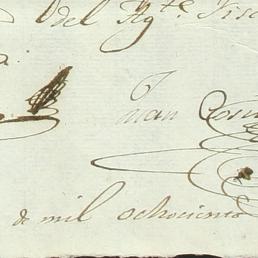 del Ag.te Fisc
Juan Cosm
de mil ochocientos